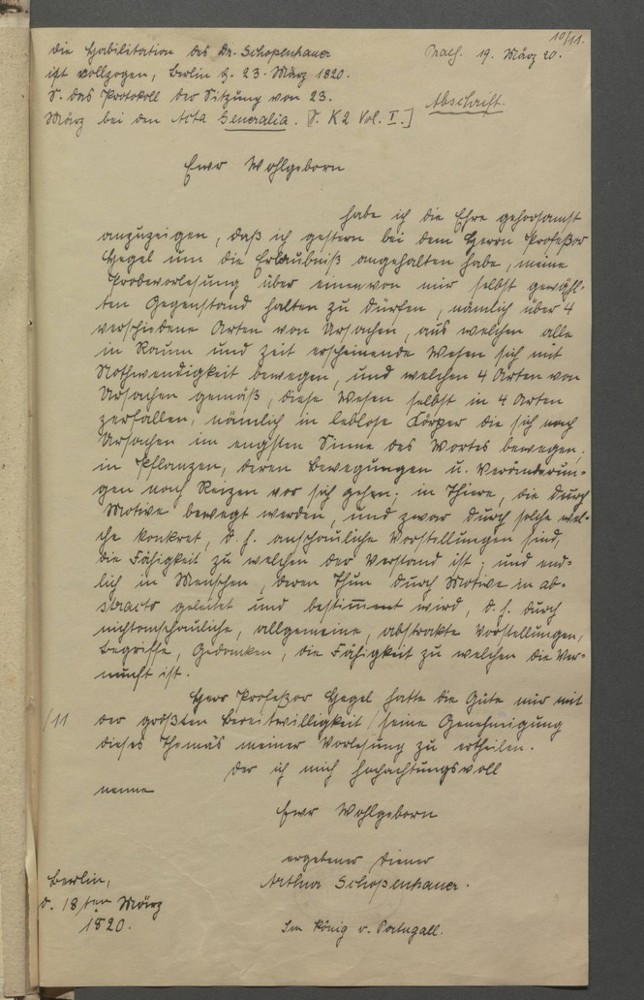 10/11.
Die Habilitation des Dr. Schopenhauer
ist vollzogen, Berlin d. 23. März 1820.
S. das Protokoll der Sitzung vom 23.
März bei den Acta Generalia. [S. K 2 Vol. I.]
Praes. 19. März 20.
Abschrift.
Ewr Wohlgeborn
habe ich die Ehre gehorsamst
anzuzeigen, daß ich gestern bei dem Herrn Profeßor
Hegel um die Erlaubniß angehalten habe, meine
Probevorlesung über einen von mir selbst gewähl-
ten Gegenstand halten zu dürfen, nämlich über 4
verschiedene Arten von Ursachen, aus welchen alle
in Raum und Zeit erscheinende Wesen sich mit
Nothwendigkeit bewegen, und welchen 4 Arten von
Ursachen gemäß, diese Wesen selbst in 4 Arten
zerfallen, nämlich in leblose Körper die sich nach
Ursachen im engsten Sinne des Wortes bewegen;
in Pflanzen, deren Bewegungen u. Veränderun-
gen nach Reizen vor sich gehen; in Thiere, die durch
Motive bewegt werden, und zwar durch solche wel-
che konkret, d. h. anschauliche Vorstellungen sind,
die Fähigkeit zu welchen der Verstand ist; und end-
lich in Menschen, deren Thun durch Motive in ab-
stracto geleitet und bestimmt wird, d. h. durch
nichtanschauliche, allgemeine, abstrakte Vorstellungen,
Begriffe, Gedanken, die Fähigkeit zu welchen die Ver-
nunft ist.
Herr Profeßor Hegel hatte die Güte mir mit
/11 der größten Bereitwilligkeit / seine Genehmigung
dieses Themas meiner Vorlesung zu ertheilen.
Der ich mich hochachtungsvoll
nenne
Ewr Wohlgeborn
ergebener Diener
Arthur Schopenhauer.
Berlin,
d. 18ten März
1820.
Im König v. Portugall.